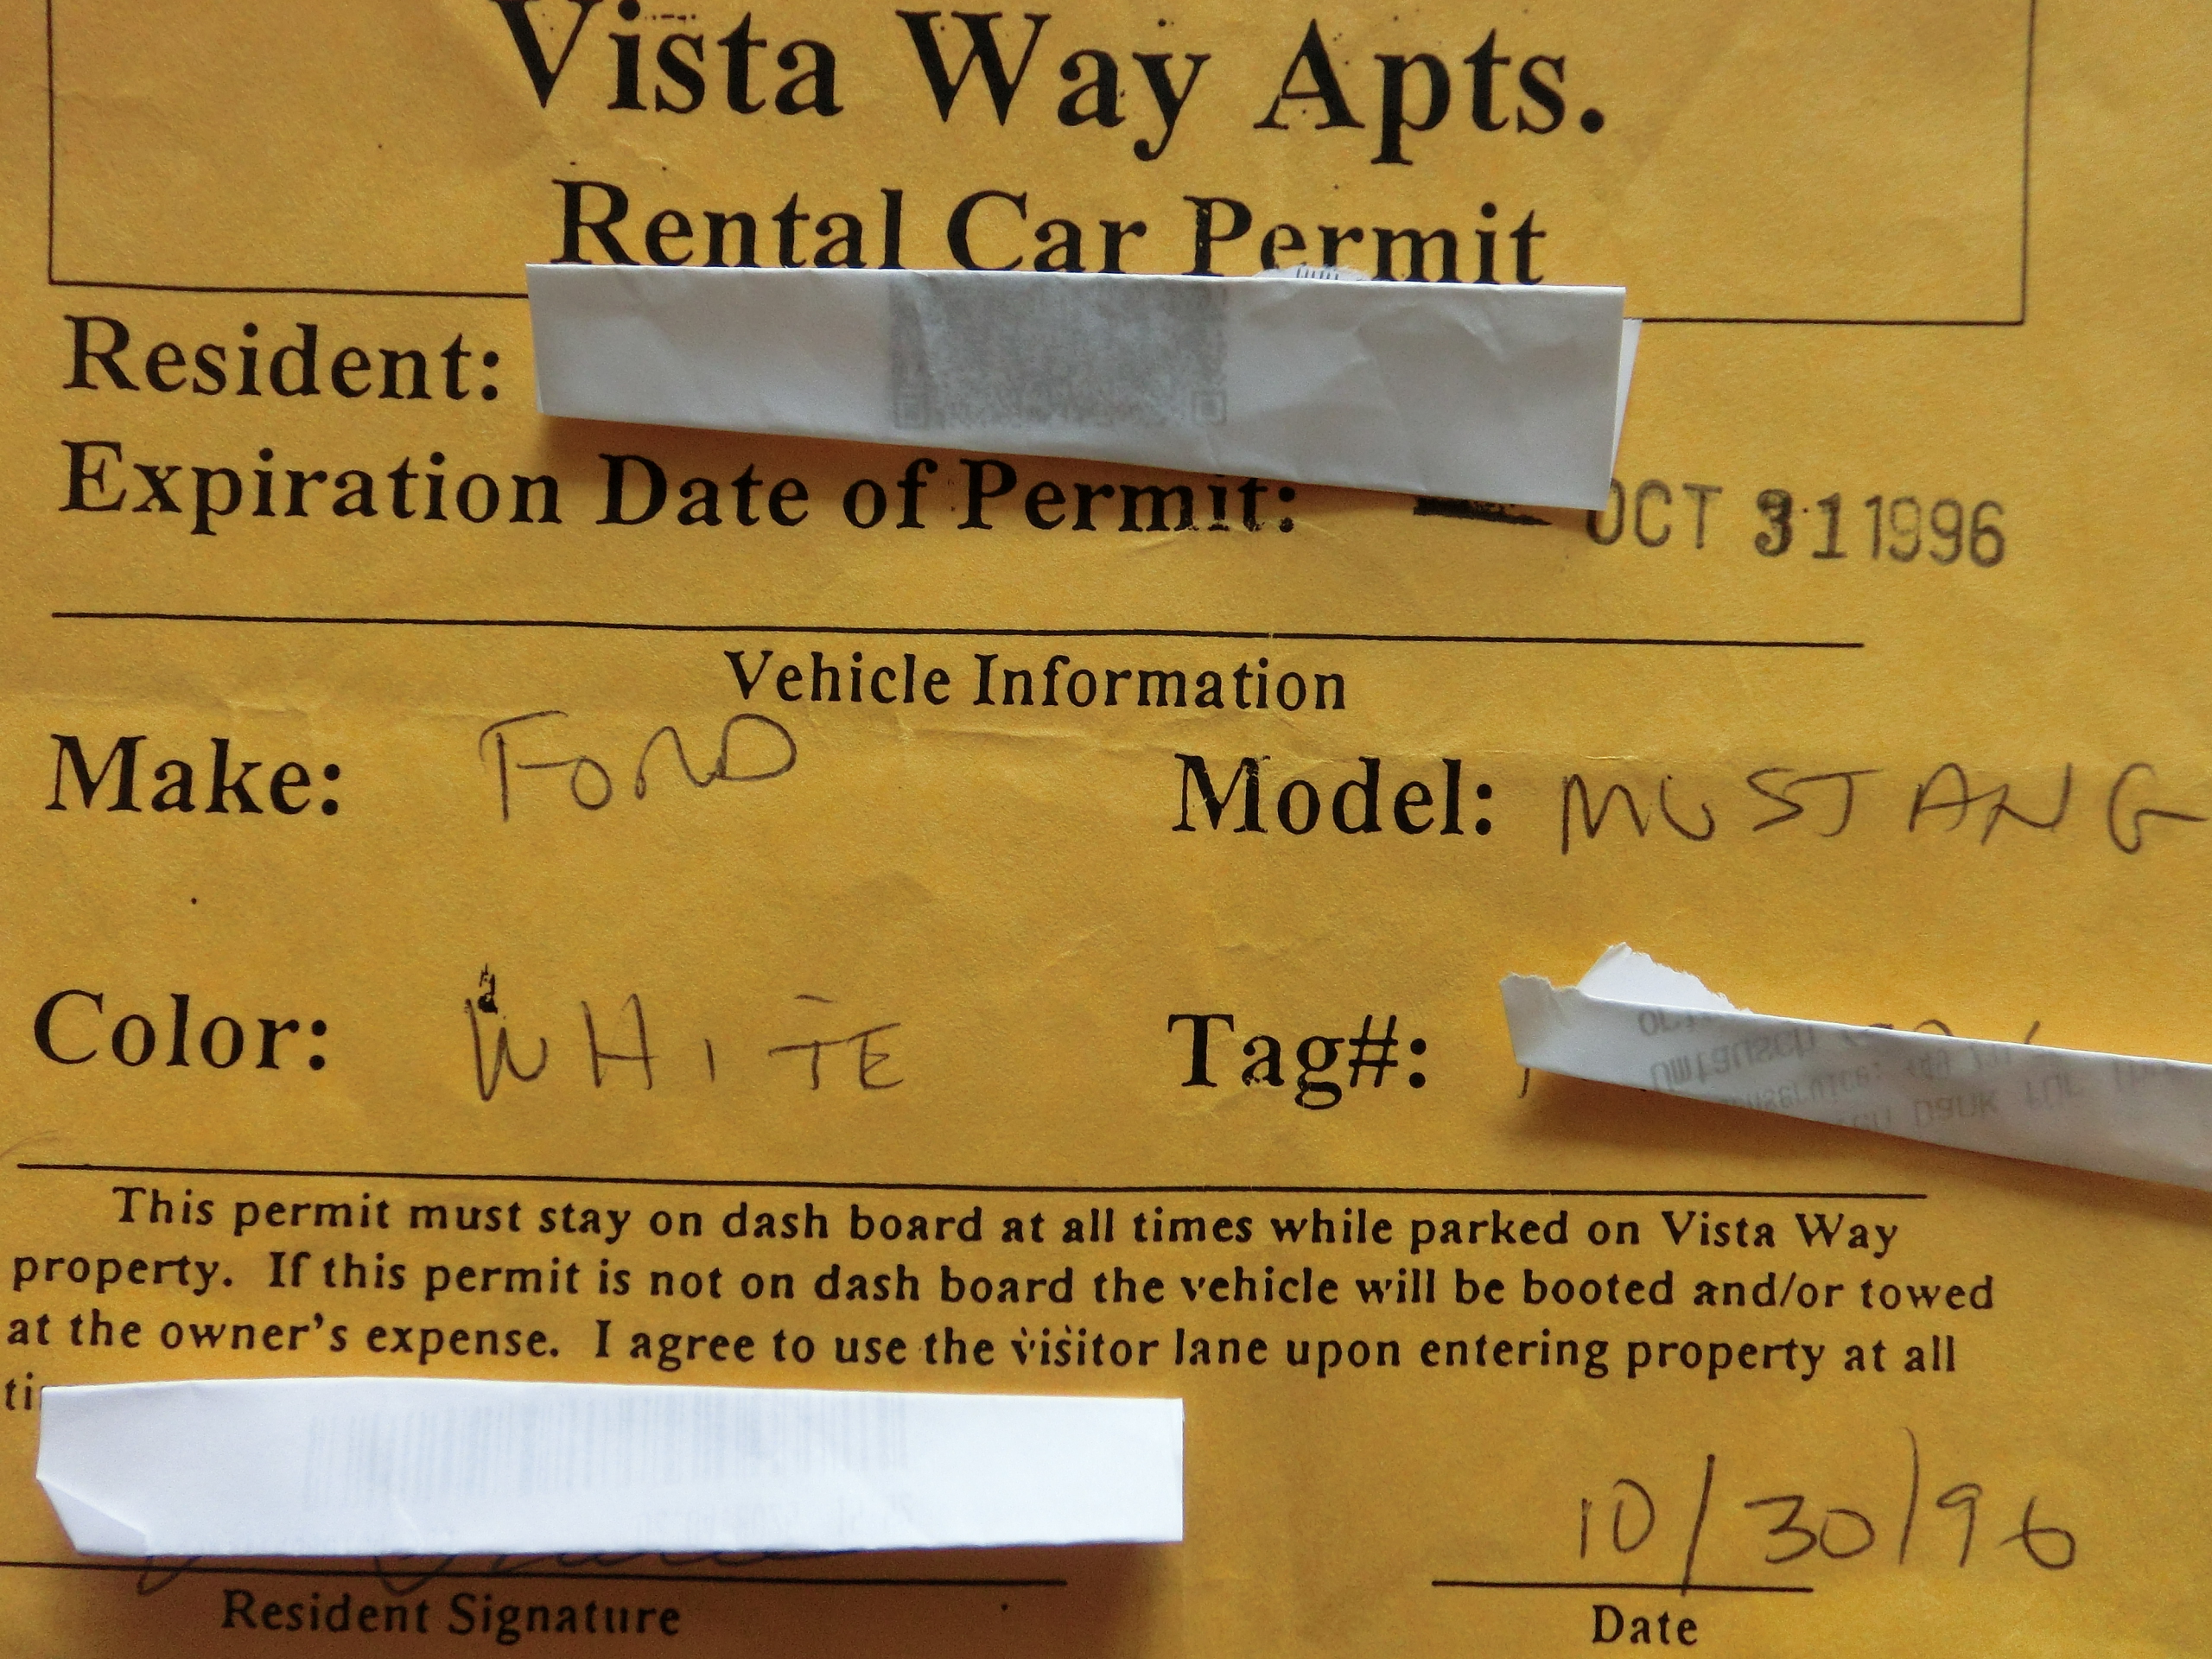 Vista Way Apts.
Rental Car Permit
Resident:
Expiration Date of Permit: OCT 31 1996
Vehicle Information
Make: FORD Model: MUSTANG
Color: WHITE Tag#:
This permit must stay on dash board at all times while parked on Vista Way
property. If this permit is not on dash board the vehicle will be booted and/or towed
at the owner's expense. I agree to use the visitor lane upon entering property at all
10/30/96
Resident Signature Date